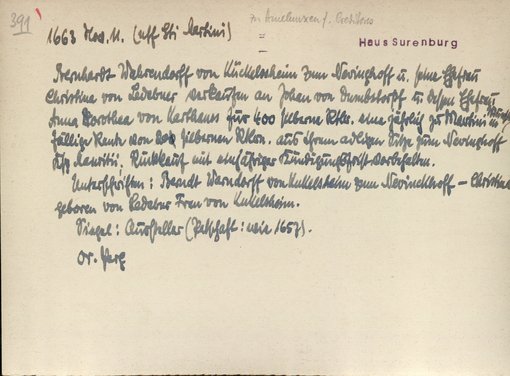 391
zu Amelunxen f. Creditores
1663 Nov. 11. (uff Sti Martini)
=
Haus Surenburg
Bernhardt Wahrendorff von Kückelsheim zum Nevinghoff u. seine Ehefrau
Christine von Ledebur verkaufen an Johan von Dumbstorff u. dessen Ehefrau
Anna Dorothea von Karthaus für 400 silberne Rtlr. eine jährlig zu Martini in
fällige Rente von silbernen Rtlrn. aus ihrem adligen Sitze zum Nevinghoff
Ksp Mauritii. Rückkauf mit einjähriger Kündigungsfrist vorbehalten.
Unterschriften: Berndt Warndorff von Kukelsheim zum Nevinckhoff – Christine
geboren von Ledebur Frau von Kukelsheim.
Siegel: Aussteller (Petschaft: wie 1657).
Or. Perg